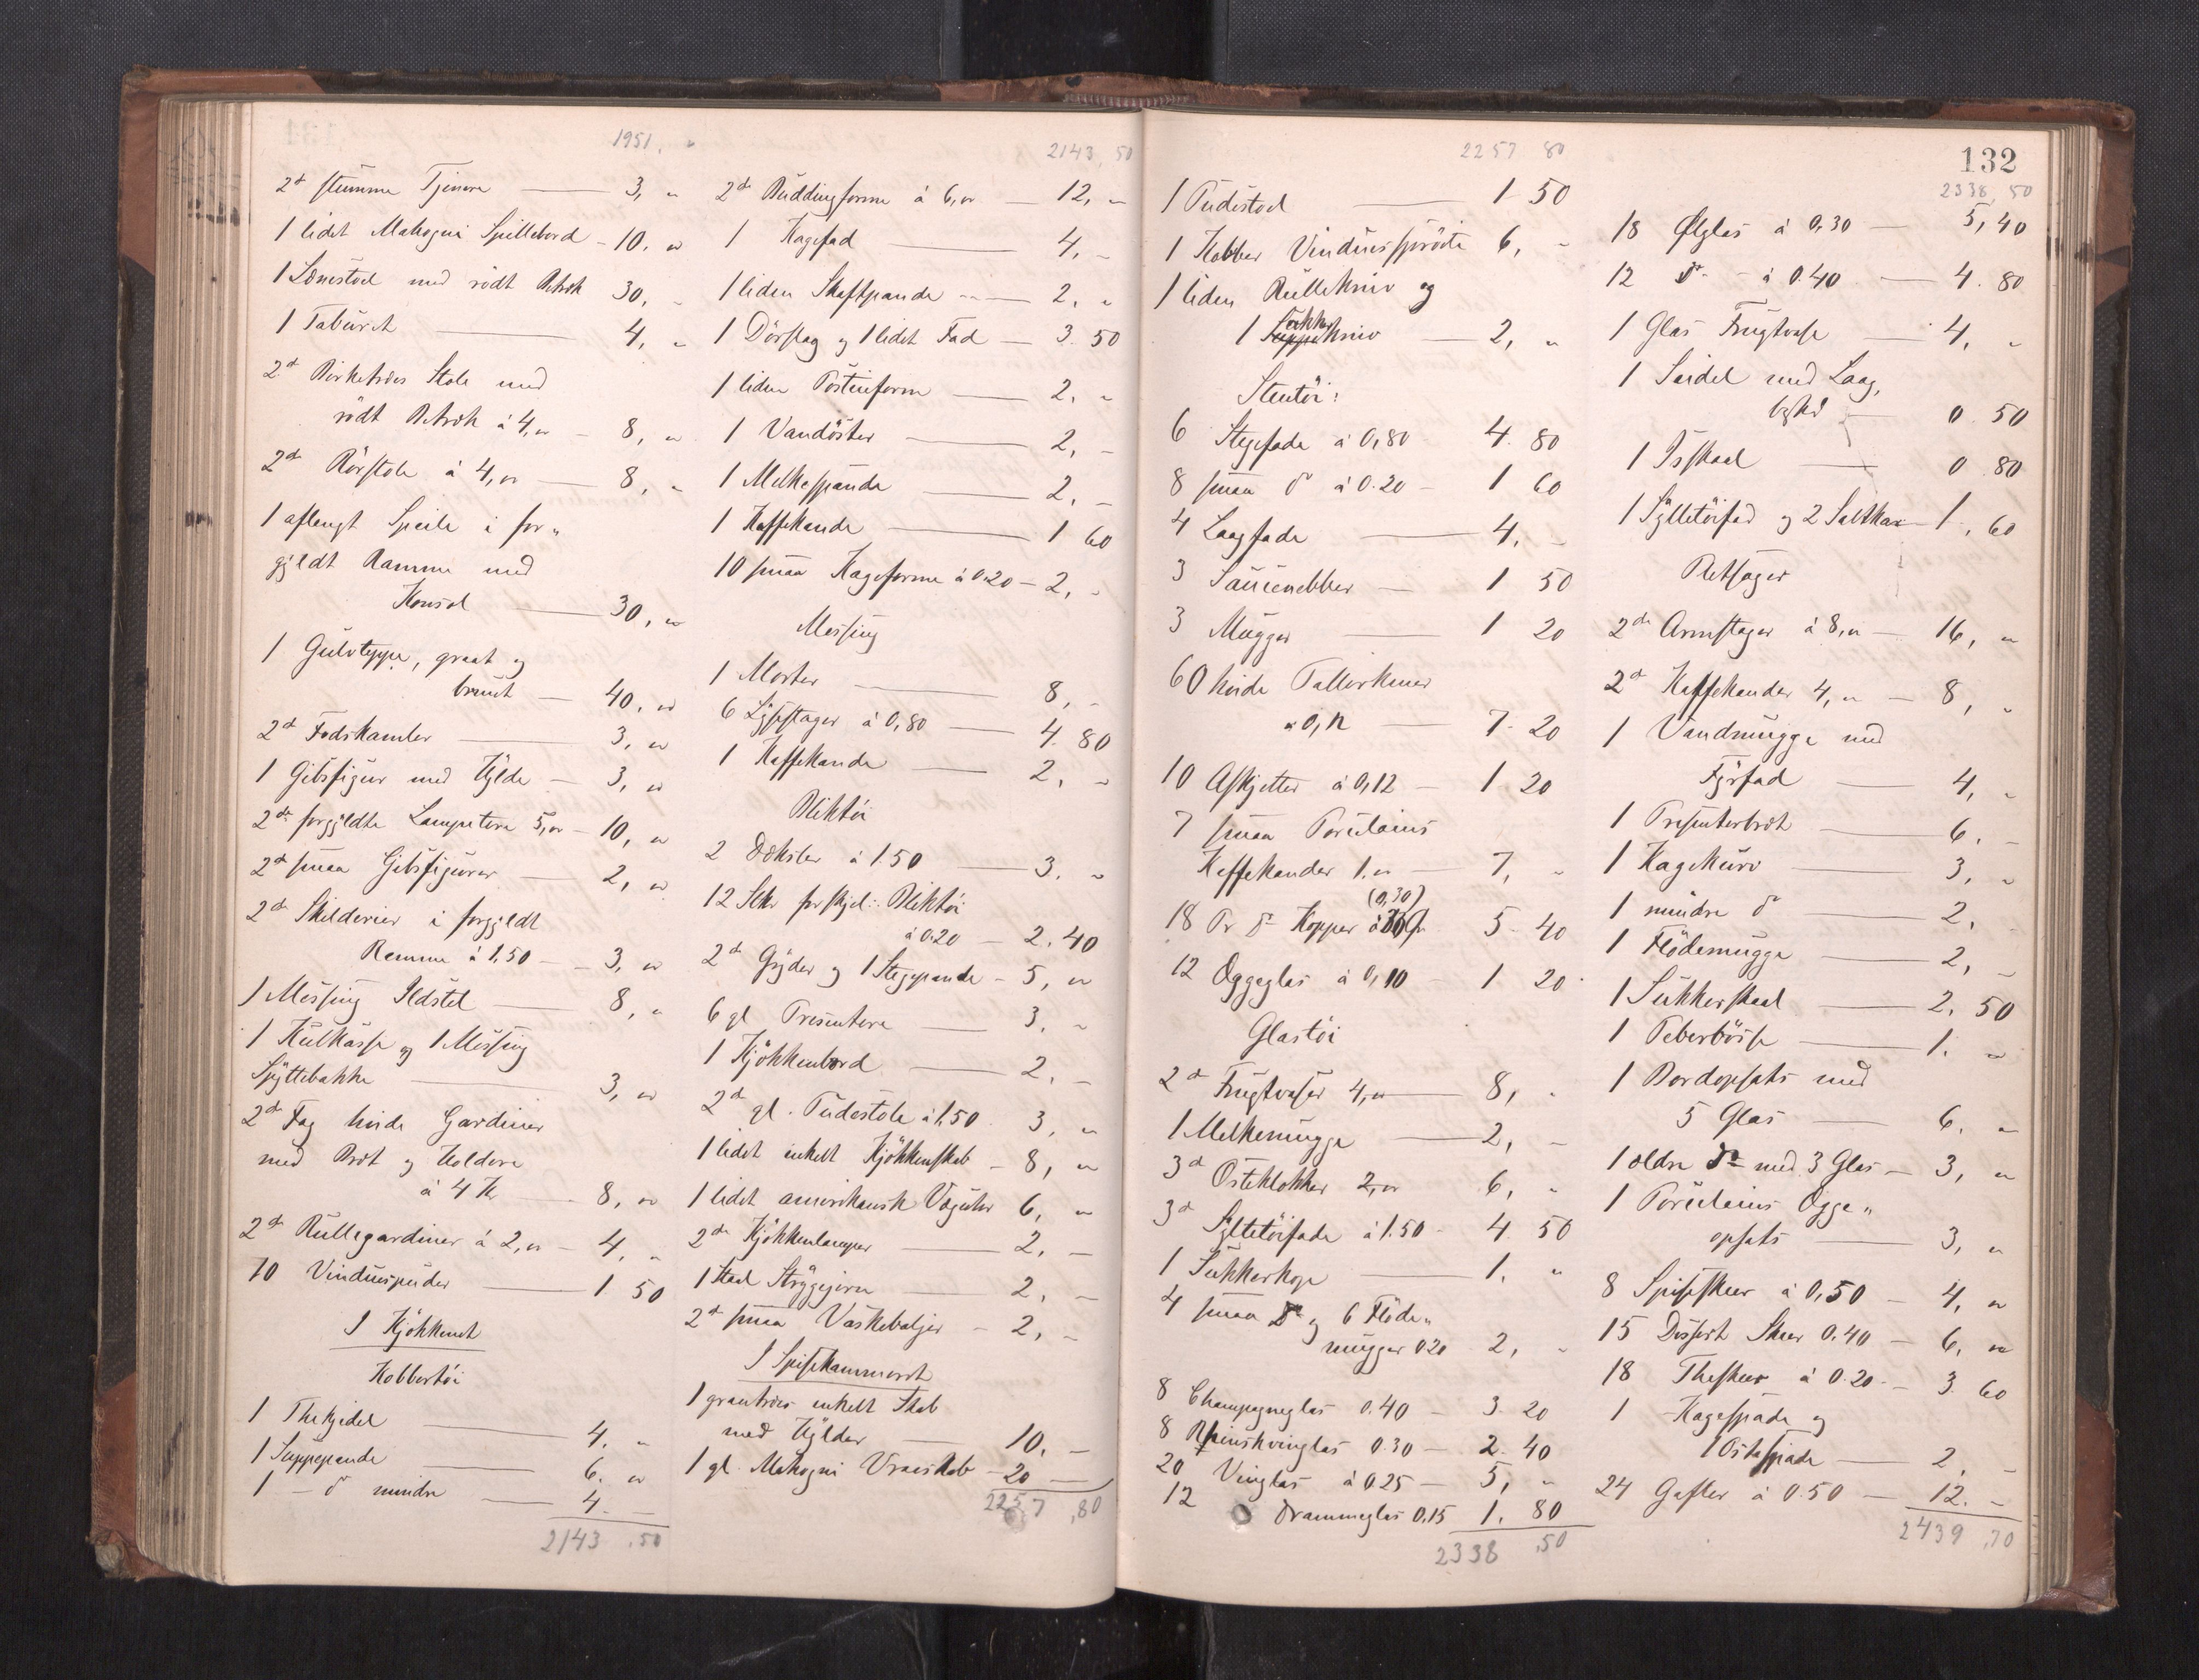 1951. "
2de stumme Tjenere 3, "
1 lidet Mahogni Spillebord 10, "
1 Lænestoel med rödt Betræk 30, "
1 Taburet 4, "
2de Birketræes Stole med
rödt Betræk à 4, " 8, "
2de Rörstole à 4, " 8, "
1 aflangt Speile i for„
gyldt Ramme med
Konsol 30, "
1 Gulvteppe, graat og
bruunt 40, "
2de Fodskamler 3, "
1 Gibsfigur med Hylde 3, "
2de forgyldte Lampetere 5, " 10, "
2de smaa Gibsfigurer 2, "
2de Skilderier i forgyldt
Ramme à 1,50 3, "
1 Messing Ildstel 8, "
1 Kulkasse og 1 Messing
Spyttebakke 3, "
2de Fag hvide Gardiner
med Bræt og Holdere
à 4 Kr 8, "
2de Rullegardiner à 2, " 4, "
10 Vinduespuder 1 50
I Kjökkenet
Kobbertöi
1 Thekjedel 4, "
1 Suppepande 6, "
1 – do mindre 4. –
2143 .50
2143, 50
2de Buddingforme à 6, " 12, "
1 Kagefad 4, –
1 liden Skaftpande 2, "
1 Dörslag og 1 lidet Fad 3. 50
1 liden Posteiform 2, "
1 Vandöster 2, –
1 Melkespande 2, –
1 Kaffekande 1 60
10 smaa Kageforme à 0.20 2, "
Messing
1 Morter 8, –
6 Lysestager à 0,80 4. 80
1 Kaffekande 2, –
Bliktöi
2 Dæksler à 1.50 3. "
12 Stkr forskjel: Bliktöi
à 0.20 2. 40
2de Gryder og 1 Stegepande 5, "
6 gl Presentere 3. "
1 Kjökkenbord 2, –
2de gl. Tudestole à 1,50 3, "
1 lidet enkelt Kjökkenskab 8, "
1 lidet amerikansk Væguhr 6, "
2de Kjökkenlamper 2, –
1 Staal Strygejern 2, –
2de smaa Vaskebaljer 2, –
I Spisekammeret
1 grantræes enkelt Skab
med Hylder 10, –
1 gl. Mahogni 20 –
2257 ,80
2257 80
1 Tudestoel 1 50
1 Kobber Vinduesspröite 6, "
1 liden Rullekniv og
1 Suppe Sukker kniv 2, "
Stentöi:
6 Stegefade à 0,80 4. 80
8 smaa do à 0.20 1 60
4 Laagfade 4, –
3 Saucenebber 1 50
3 Mugger 1 20
60 hvide Tallerkener
à 0,12 7. 20
10 Asjetter à 0,12 1 20
7 smaa Porcelains
Kaffekander 1. " 7, "
(0,30)
18 Pr do Kopper à 5. 40
12 Æggeglas à 0,10 1 20
Glastöi
2de Frugtvaser 4, " 8, "
1 Melkemugge 2, –
3de Osteklokker 2, " 6, "
3de Syltetöifade à 1.50 4. 50
1 Sukkerkop 1. "
4 smaa do og 6 Flöde„
mugger 0.20 2, "
8 Champagneglas 0.40 3. 20
8 Rhinskvinglas 0.30 2. 40
20 Vinglas à 0.25 5, "
12 Drammeglas 0,15 1. 80
2338 .50
132
2338, 50
18 Ølglas à 0,30 5, 40
12 do à 0.40 4. 80
1 Glas Frugtvase 4, "
1 Seidel med Laag,
0. 50
1 Isskaal 0 80
1 Syltetöifad og 2 Saltkar 1, 60
Pletsager
2de Armstager à 8, " 16, "
2de Kaffekander 4, " 8, "
1 Vandmugge med
Fyrfad 4, "
1 Presenterbræt 6. –
1 Kagekurv 3, "
1 mindre do 2. –
1 Flödemugge 2, –
1 Sukkerskaal 2. 50
1 Peberbösse 1. "
1 Bordopsats med
5 Glas 6. "
1 ældre do med 3 Glas 3, "
1 Porcelains Ægge„
opsats 3, "
8 Spiseskeer à 0,50 4, "
15 Dessert Skeer 0.40 6, "
18 Theskeer à 0.20 3. 60
1 Kagespade og
1 Ostespade 2, –
24 Gafler à 0.50 12. –
2439 .70